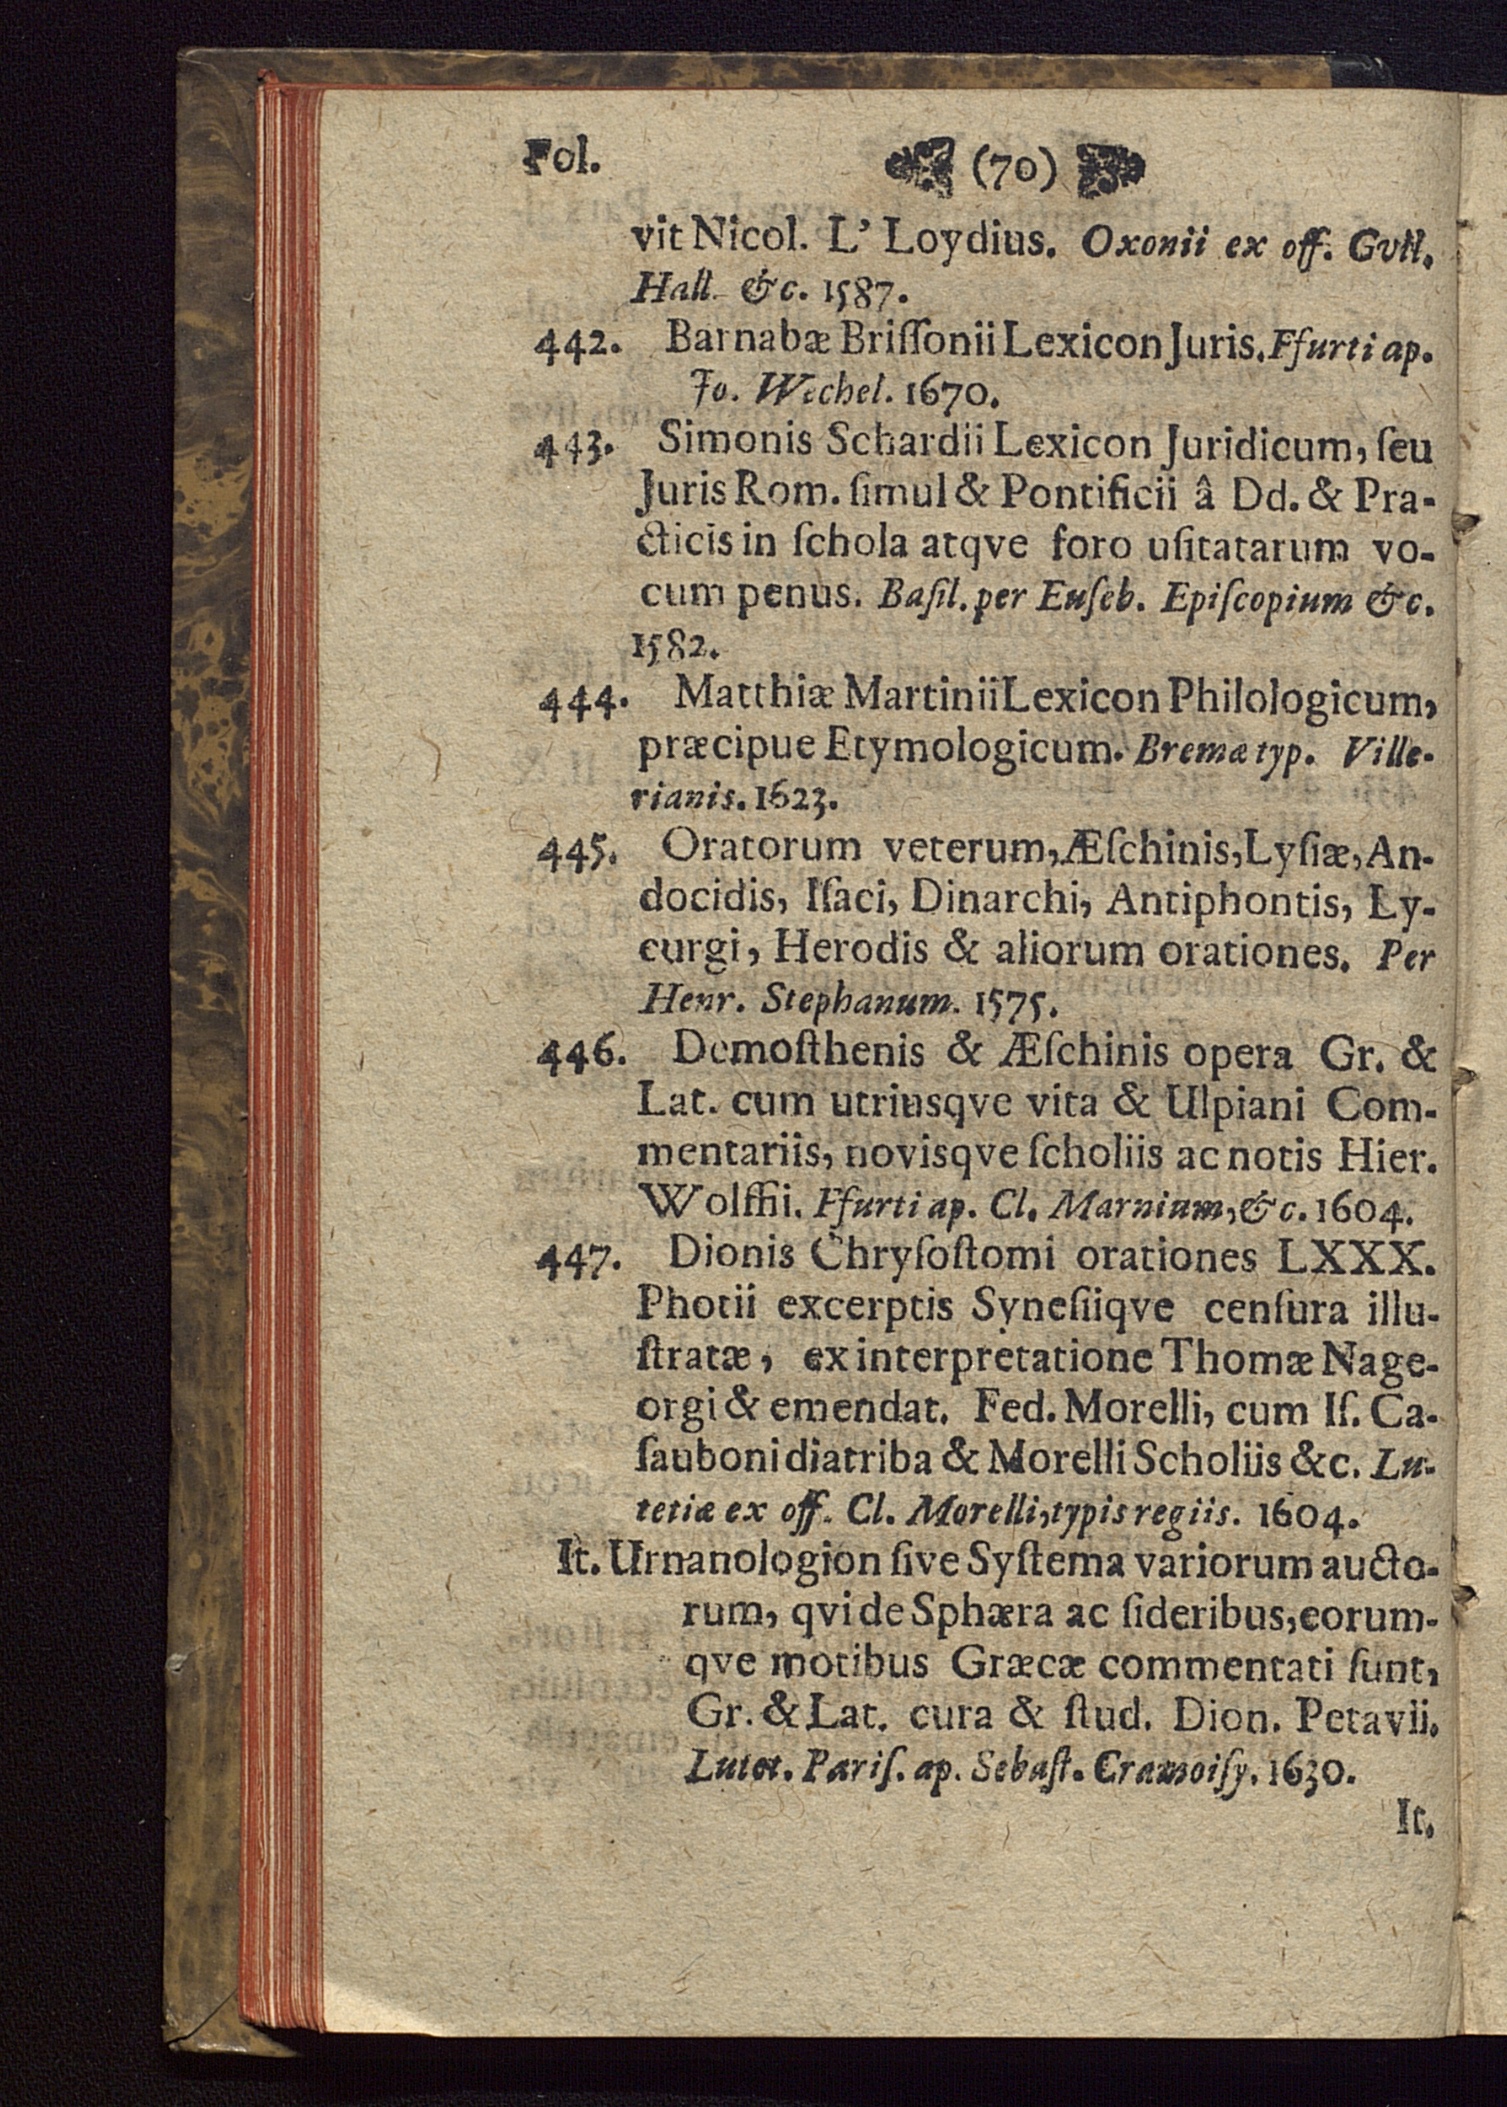 Fol. (70)
vit Nicol. L' Loydius. Oxonii ex off. Gvil.
Hall &c. 1587.
442. Barnabæ Briſſonii Lexicon Juris. Ffurti ap.
Jo. Wechel. 1670.
443. Simonis Schardii Lexicon Juridicum, ſeu
Juris Rom. ſimul & Pontificii â Dd. & Pra-
cticis in ſchola atqve foro uſitatarum vo-
cum penus. Baſil. per Euſeb. Epiſcopium &c.
1582.
444. Matthiæ Martinii Lexicon Philologicum,
præcipue Etymologicum. Bremæ typ. Ville-
rianis. 1623.
445. Oratorum veterum, Æſchinis, Lyſiæ, An-
docidis, Iſaci, Dinarchi, Antiphontis, Ly-
curgi, Herodis & aliorum orationes. Per
Henr. Stephanum. 1575.
446. Demoſthenis & Æſchinis opera Gr. &
Lat. cum utriusqve vita & Ulpiani Com-
mentariis, novisqve ſcholiis ac notis Hier.
Wolffii. Ffurti ap. Cl. Marnium, &c. 1604.
447. Dionis Chryſoſtomi orationes LXXX.
Photii excerptis Syneſiiqve cenſura illu-
ſtratæ, ex interpretatione Thomæ Nage-
orgi & emendat. Fed. Morelli, cum Iſ. Ca-
ſauboni diatriba & Morelli Scholiis &c. Lu-
tetiæ ex off. Cl. Morelli, typis regiis. 1604.
It. Urnanologion ſive Syſtema variorum aucto-
rum, qvi de Sphæra ac ſideribus, eorum-
qve motibus Græcæ commentati ſunt,
Gr. & Lat. cura & ſtud. Dion. Petavii.
Lutet. Pariſ. ap. Sebaſt. Cramoiſy. 1630.
It.